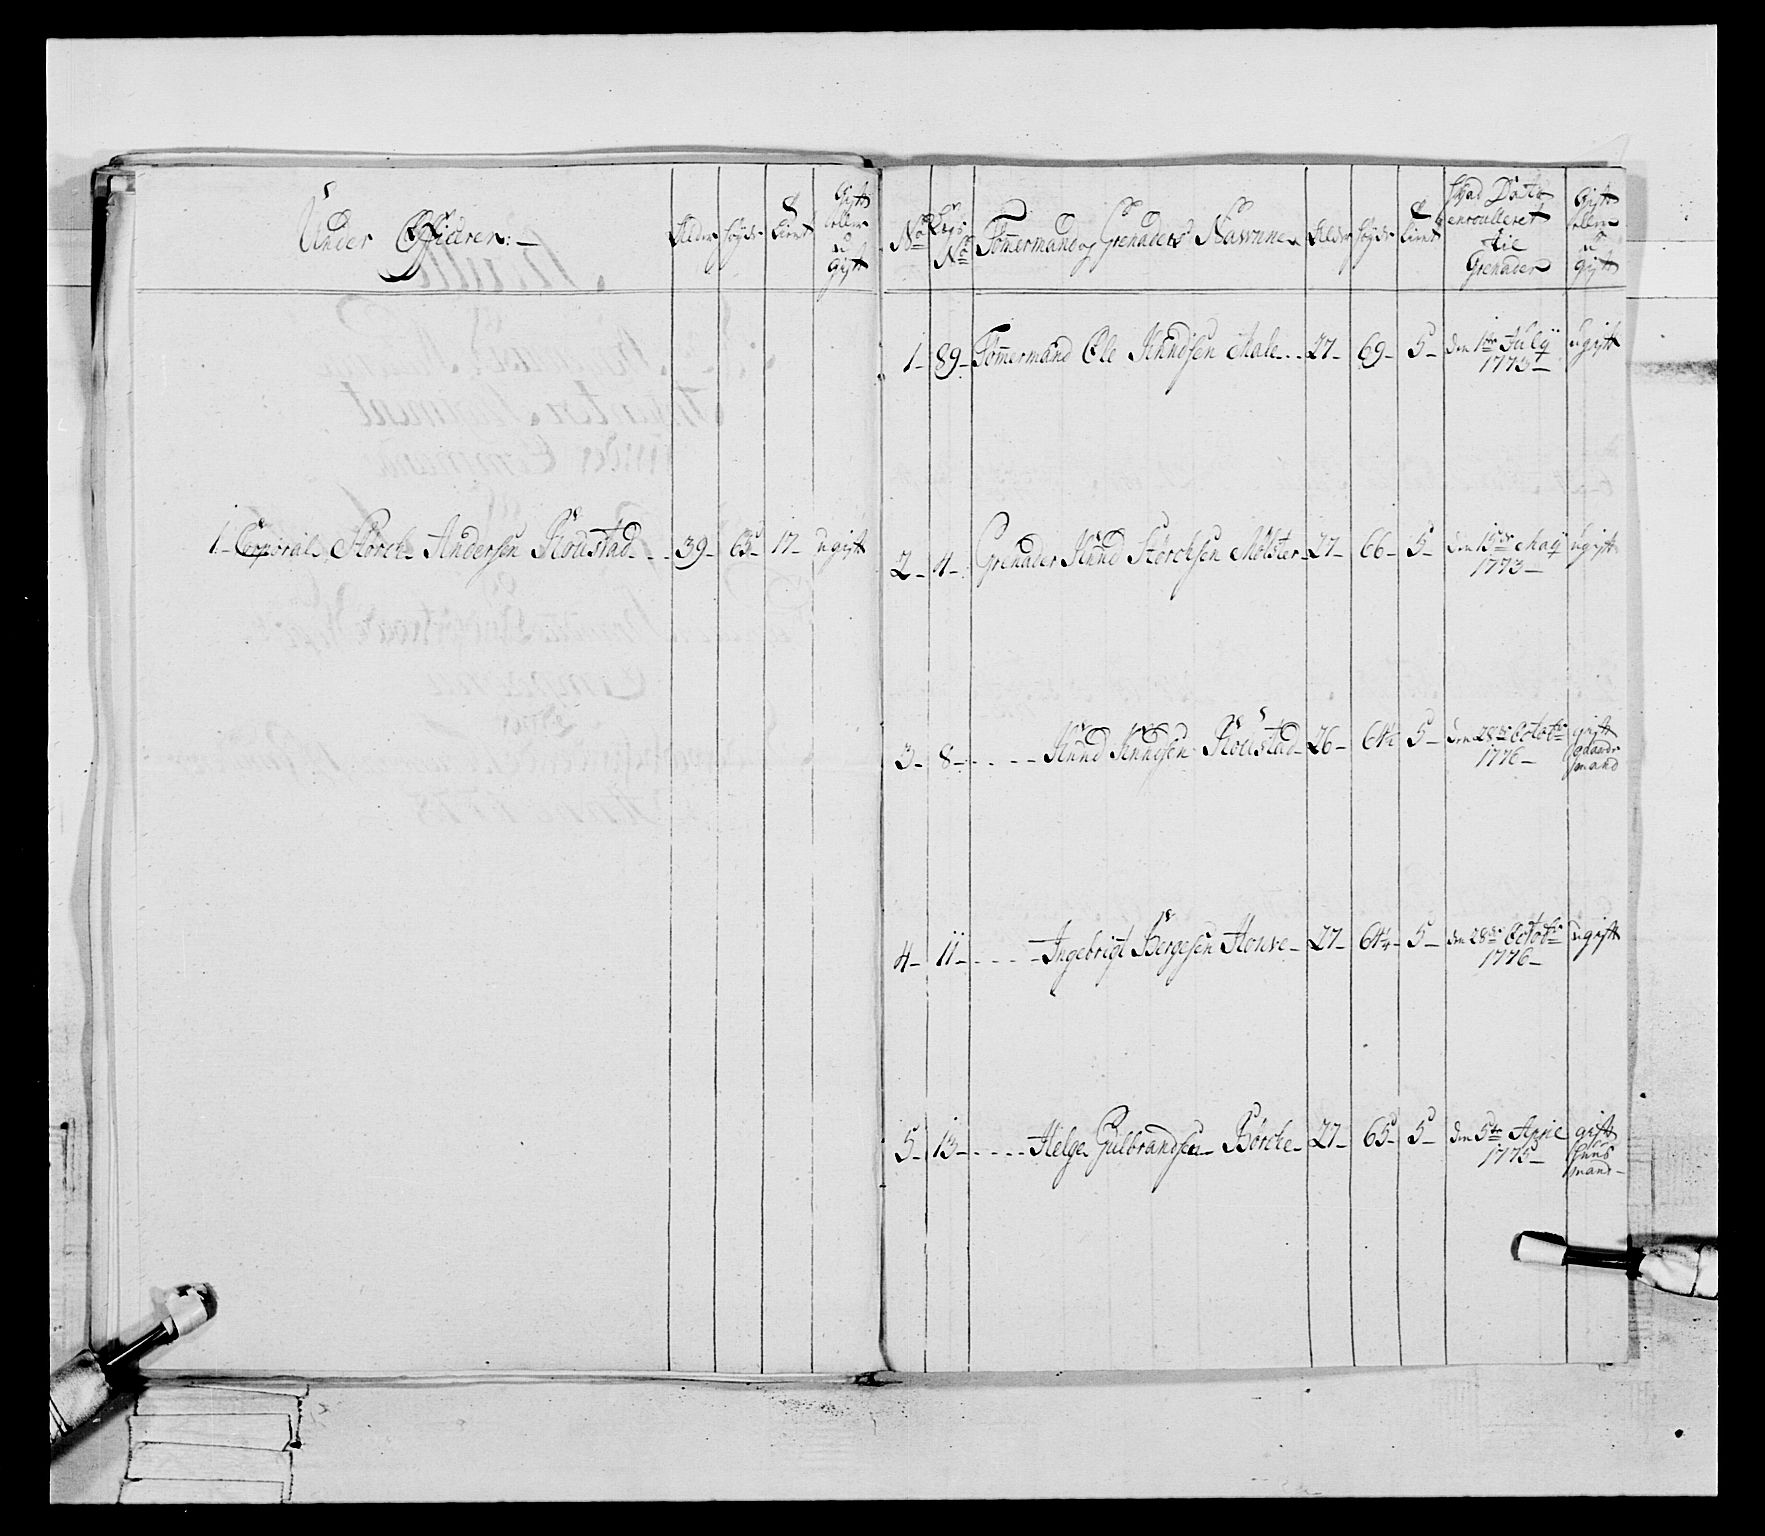 Under Officerer:
Alder
Høyde
Tient
Gift
eller
u
gift
1 Corporal Størck Andersen Rockstad 39 65 17 ugift
No
Comp:
No
Tømmermand og Grenaders Nafvnne
Alder
Høyde
Tient
Hvad Dato
enroulleret
til
Grenader
Gift
eller
u
gift
1 89 Tømmermand Ole Knudsen Male 27 69 5 den 1te Julÿ ugift
1773
2 4 Grenader Knud Størcksen Mølster 27 66 5 den 15de Maÿ ugift
1773
3 8 Knud Knudsen 26 64½ 5 den 28de Octobr gift
1776 gaard
mand
4 11 Ingebrigt Bergesen 27 64¼ 5 den 28de Octobr ugift
1776
5 13 Helge Gulbrandsen Børcke 27 65 5 den 5te April gift
1775 huus
mand